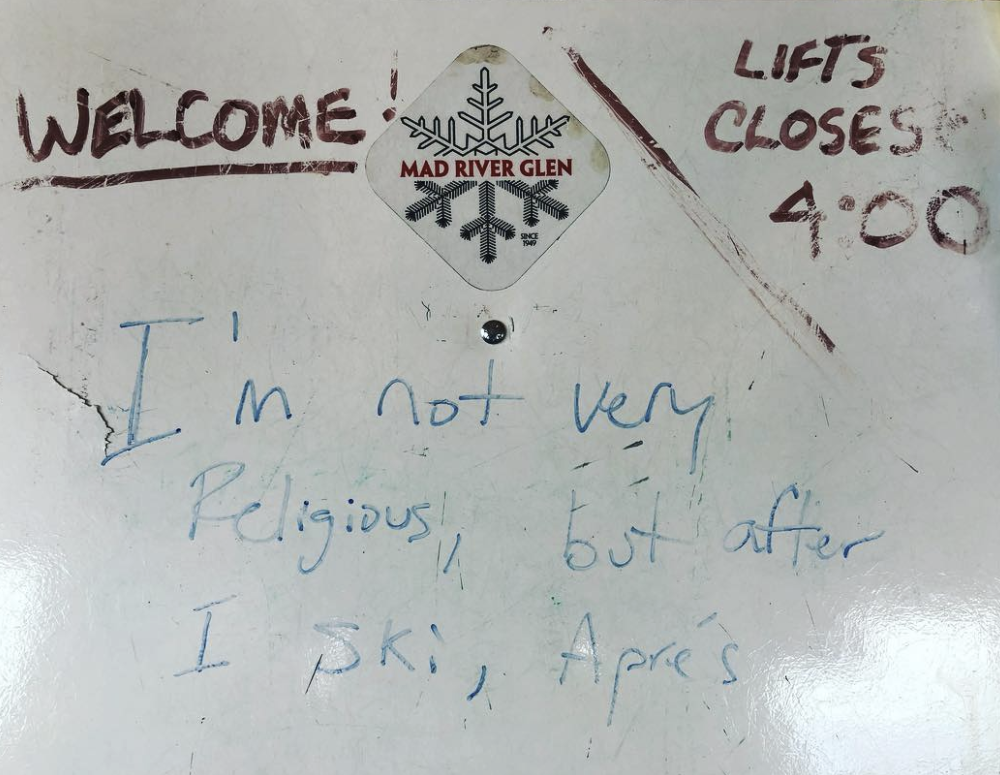 WELCOME!
MAD RIVER GLEN
SINCE
1949
LIFTS
CLOSES
4:00
I'm not very
Religious, but after
I ski, Aprés